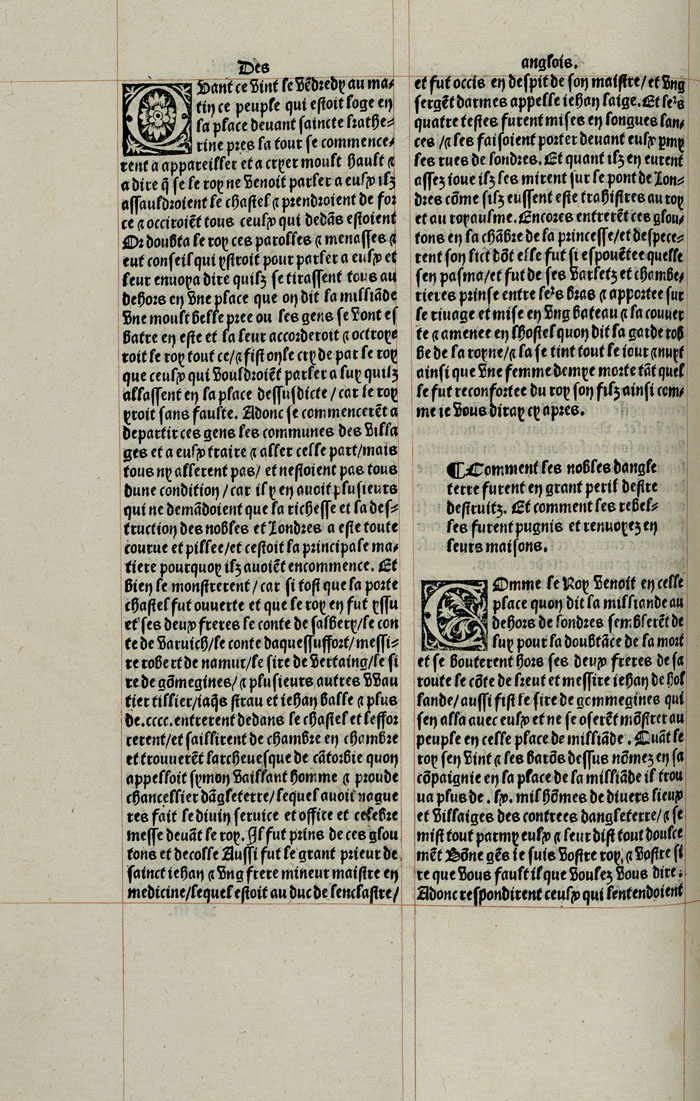 Des
anglois.
QVant ce vint le vẽdredy au ma⸗
tin ce peuple qui estoit loge en
la place devant saincte kathe⸗
rine pres la tour se commence⸗
rent a appareiller et a cryer moult hault ⁊
a dire q̃ se le roy ne venoit parler a eulx ilz
assauldroient le chastel ⁊ prendroient de for
ce ⁊ occiroiẽt tous ceulx qui dedãs estoient
Or doubta le roy ces parolles ⁊ menasses ⁊
eut conseil qui ystroit pour parler a eulx et
leur envoya dire quilz se tirassent tous au
dehors en vne place que on dit la milliãde
vne moult belle pree ou les gens se vont es
batre en este et la leur accorderoit ⁊ octroye
roit le roy tout ce/⁊ fist on le cry de par le roy
que ceulx qui vouldroiẽt parler a luy quilz
allassent en la place dessusdicte/car le roy
yroit sans faulte. Adonc se commencerẽt a
departir ces gens les communes des villa
ges et a eulx traire ⁊ aller celle part/mais
tous ny allerent pas/ et nestoient pas tous
dune condition/car il y en avoit plusieurs
qui ne demãdoient que la richesse et la des⸗
truction des nobles et Londres a este toute
courue et pillee/et cestoit la principale ma⸗
tiere pourquoy ilz avoiẽt encommence. Et
bien le monstrerent/car si tost que la porte
chastel fut ouverte et que le roy en fut yssu
et ses deux freres le conte de salbery/le con
te de varuich/le conte daquessuffort/messi⸗
re robert de namur/le sire de vertaing/le si
re de gõmegines/⁊ plusieurs autres vvau
tier tillier/iaq̃s strau et iehan balle ⁊ plus
de.cccc.entrerent dedans le chastel et leffor
cerent/et saillirent de chambre en chambre
et trouverẽt larchevesque de cãtorbie quon
appelloit symon vaillant homme ⁊ proude
chancellier dãgleterre/lequel avoit nague
res fait le divin service et office et celebre
messe devãt le roy. Il fut prins de ces glou
tons et decolle Aussi fut le grant prieur de
sainct iehan ⁊ vng frere mineur maistre en
medicine/lequel estoit au duc de lenclastre/
et fut occis en despit de son maistre/et vng
sergẽt darmes appelle iehan laige. Et le⁹s
quatre testes furent mises en longues lan⸗
ces/⁊ les faisoient porter devant eulx pmy
les rues de londres. Et quant ilz en eurent
assez ioue ilz les mirent sur le pont de Lon⸗
dres cõme silz eussent este trahistres au roy
et au royaulme. Encores entrerẽt ces glou⸗
tons en la chãbre de la princesse/et despece⸗
rent son lict dõt elle fut si espouẽtee quelle
sen pasma/et fut de ses varletz et chambe⸗
rieres prinse entre le⁹s bras ⁊ apportee sur
le rivage et mise en vng bateau ⁊ la couver
te ⁊ amenee en lhostel quon dit la garde rob
be de la royne/⁊ la se tint tout le iour ⁊ nuyt
ainsi que vne femme demye morte tãt quel
le fut reconfortee du roy son filz ainsi com⸗
me ie vous diray cy apres.
¶Comment les nobles dangle
terre furent en grant peril destre
destruitz. Et comment les rebel⸗
les furent pugnis et renvoyez en
leurs maisons.
COmme le Roy venoit en celle
place quon dit la milliande au
dehors de londres semblerẽt de
luy pour la doubtãce de la mort
et se bouterent hors ses deux freres de sa
route le cõte de kent et messire iehan de hol
lande/aussi fist le sire de gommegines qui
sen alla avec eulx et ne se oserẽt mõstrer au
peuple en celle place de milliãde. Quãt le
roy sen vint ⁊ les barõs dessus nõmez en sa
cõpaignie en la place de la milliãde il trou
va plus de.lx.mil hõmes de divers lieux
et villaiges des contrees dangleterre/⁊ se
mist tout parmy eulx ⁊ leur dist tout doulce
mẽt Bõne gẽs ie suis vostre roy ⁊ vostre si
re que vous fault il que voulez vous dire.
Adonc respondirent ceulx qui lentendoient